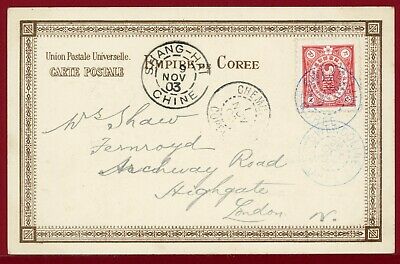 Union Postale Universelle.
CARTE POSTALE
EMPIRE DE COREE
SHANG-HAI
NOV
03
CHINE
CHEMULPO
COREE
Mrs Shaw
Fernroyd
Archway Road
Highgate
London N.